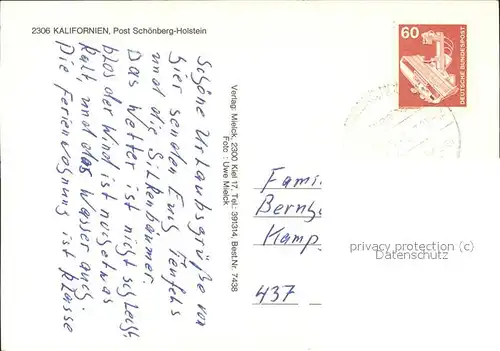 2306 KALIFORNIEN, Post Schönberg-Holstein
Schöne Urlaubsgrüße von
hier senden Euch Teufels
und die Silkenbäumer.
Das Wetter ist nicht schlecht
blos der Wind ist noch etwas
kalt, und das Wasser auch.
Die Ferienwohnung ist Klasse
Verlag: Mielck, 2300 Kiel 17, Tel.: 391314, Best.Nr. 7438
Foto: Uwe Mielck
60
DEUTSCHE BUNDESPOST
Fami
Bernh
Kamp
437
privacy protection (c)
Datenschutz